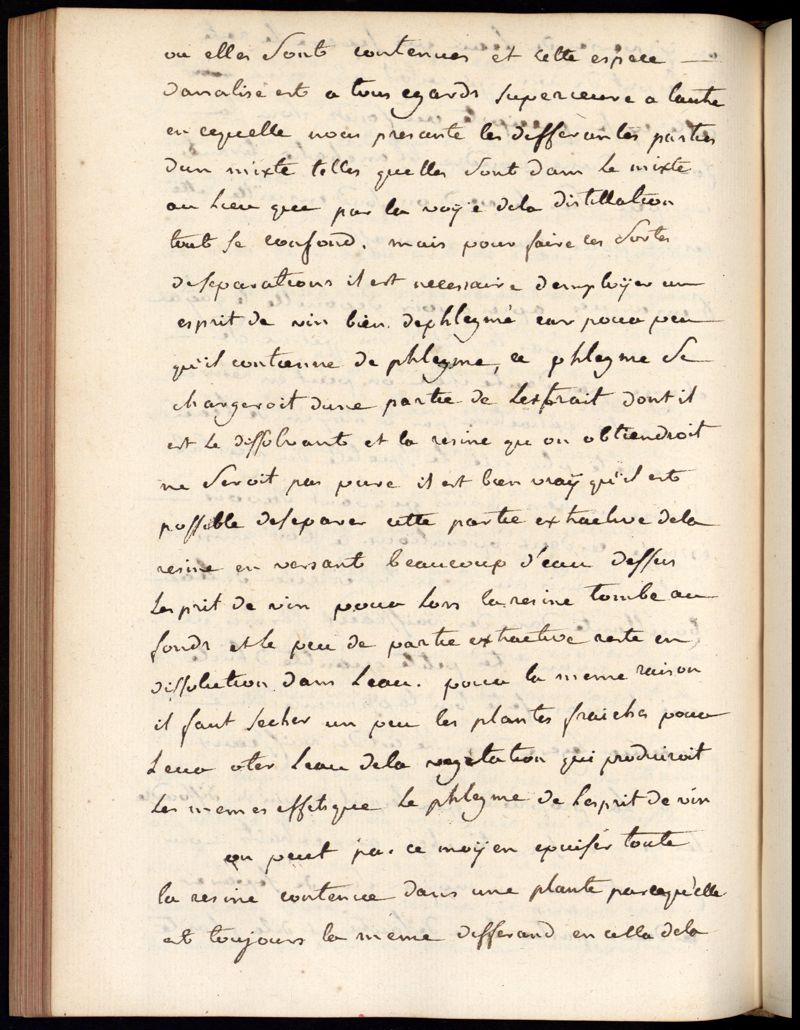 ou elles sont contenues et cette espece
danalise est a tous egards superieure a lautre
en cequelle nous presante les differantes parties
dun mixte telles quelles sont dans le mixte
au lieu que par la voÿe dela distillation
tout se confond. mais pour faire ces sortes
deseparations il est necessaire demploÿer un
esprit de vin bien dephlegmé car pour peu
qu'il contienne de phlegme, ce phlegme se
chargeroit dune partie de lextrait dont il
est le dissolvant et la resine qu on obtiendroit
ne seroit pas pure il est bien vraÿ qu'il est
possible deseparer cette partie extractive dela
resine en versant beaucoup d'eau dessus
lesprit de vin pour lors la resine tombe au
fonds et le peu de partie extractive reste en
dissolution dans leau. pour la meme raison
il faut secher un peu les plantes fraiches pour
leur oter leau dela vegetation qui produiroit
les memes effets que le phlegme de lesprit de vin
on peut par ce moÿen epuiser toute
la resine contenue dans une plante parcequ'elle
est toujours la même differand en cella dela